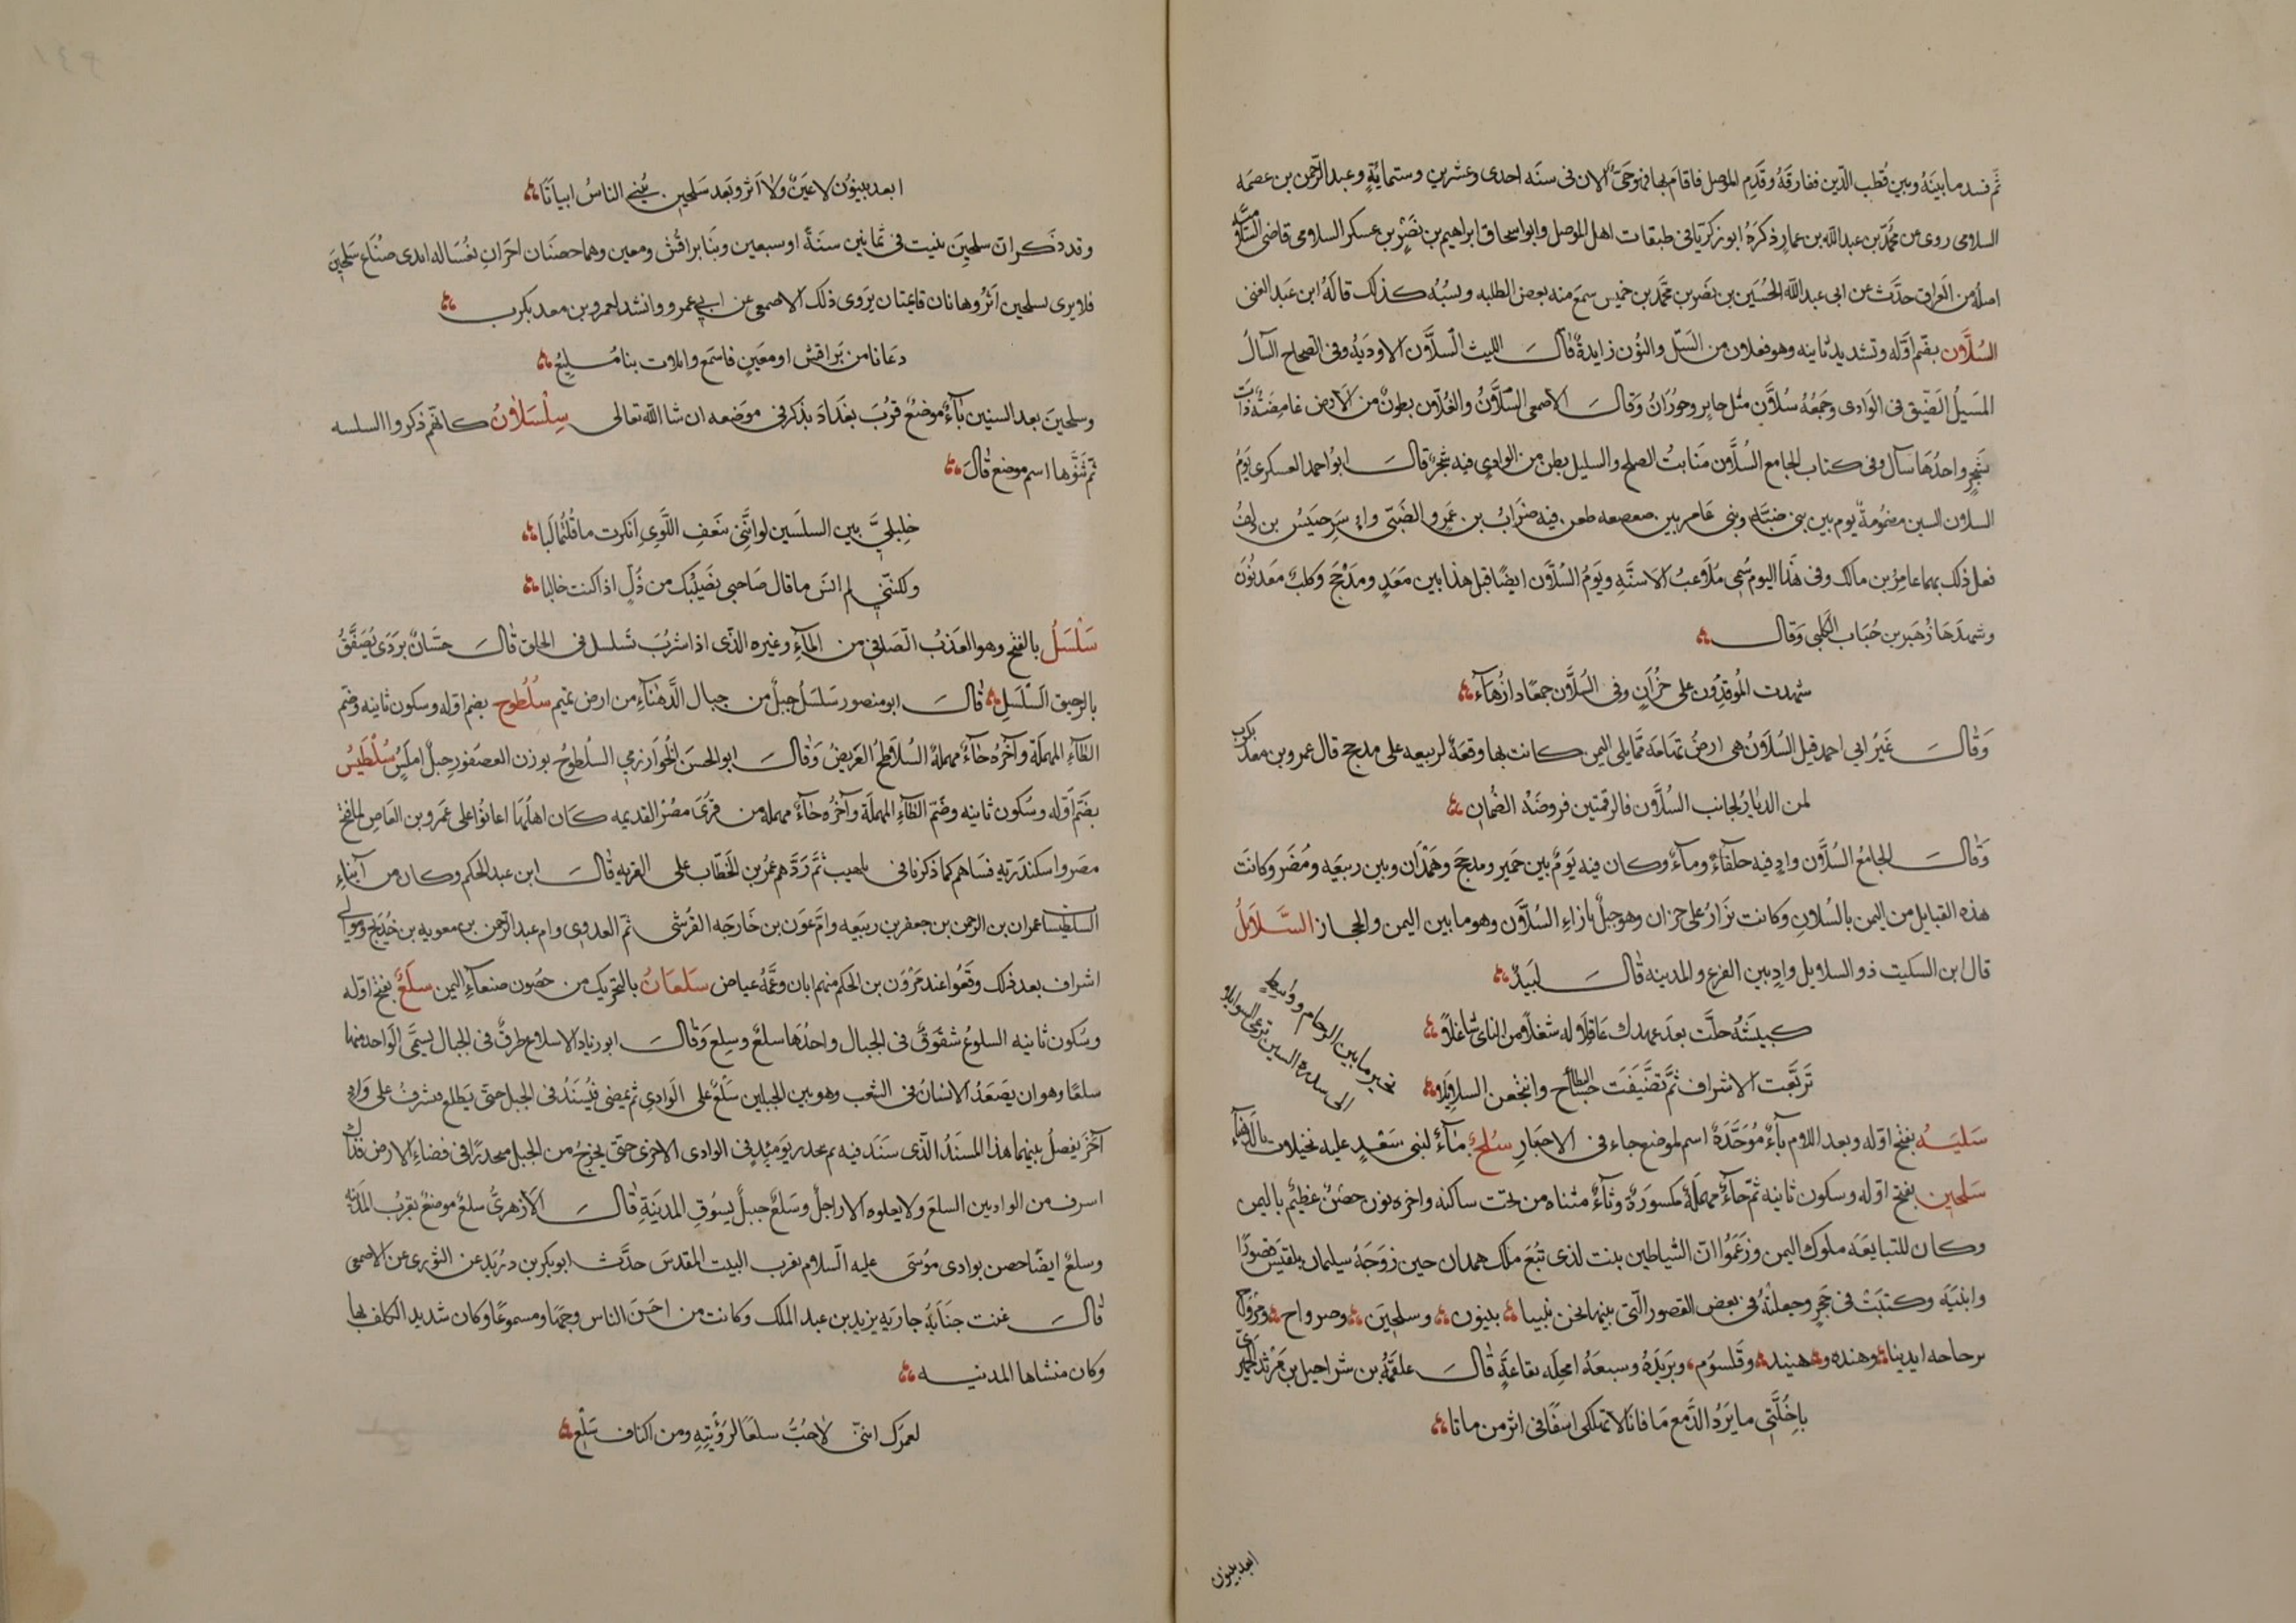 ثم فسد ما بينه وبين قطب الدين ففارقه وقدم الموصل فاقام بها فهو حي الان فى سنه احدى وعشرين وستمايةٍ وعبد الرحمن بن عصمه
السلامى روى عن محمد بن عبد الله بن عمار ذكره ابو زكريا فى طبقات اهل الموصل وابو اسحاق ابراهيم بن نصر بن عسكر السلامى قاضى السلامية
اصله من العراق حدث عن ابى عبد الله الحسين بن نصر بن محمد بن خميس سمع منه بعض الطلبه ونسبه كذلك قاله ابن عبد الغنى
السُلّان بضم اوله وتشديد ثانيه وهو فعلان من السل والنون زايدة قال الليث السلان الاوديه وفى الصحاح السال
المسيل الضيق فى الوادى وجمعه سلان مثل حاير وحوران وقال الاصمعى السلان والغلان بطون من الارض غامضة ذات
شجر واحدها سال وفى كتاب الجامع السلان منابت الطلح والسليل بطن من الوادى فيه شجر قال ابو احمد العسكرى يوم
السلان السين مضمومة يوم بين بنى ضبه وبنى عامر بن صعصعه طعن فيه ضرار بن عمرو الضبى واسر حبيش بن دلف
فعل ذلك بهما عامر بن مالك وفى هذا اليوم سمى ملاعب الاسنه ويوم السلان ايضا قبل هذا بين معد ومذحج وكلب معديون
وشهدها زهير بن جناب الكلبى وقال
شهدت الموقدون على خزاز وفى السلان جمعا ذا زهاء
وقال غير ابى احمد قيل السلان هى ارض تهامه مما يلى اليمن كانت بها وقعة لربيعه على مدحج قال عمرو بن معدى كرب
لمن الديار لجانب السلان فالرقمتين فروضة الضمان
وقال الجامع السلان واد فيه حلفاء وماء وكان فيه يوم بين حمير ومدحج وهمدان وبين ربيعه ومضر وكانت
هذه القبايل من اليمن بالسلان وكانت نزار على خزاز وهو جبل بازاء السلان وهو ما بين اليمن والحجاز السلايل
قال ابن السكيت ذو السلايل واد بين الفرع والمدينه قال لبيد
كبيشة حلت بعد عهدك عاقلا وكانت له شغلا من الناى شاغلا
تربعت الاشراف ثم تضيفت حساء البطاح وانتجعن السلايلا
تخير ما بين الرجام وواسط
الى سدرة الرسين ترعى السوايلا
سلبه بفتح اوله وبعد اللام باء موحدة اسم لموضع جاء فى الاخبار سلح ماء لبنى سعد عليه نخيلات بالدهناء
سلحين بفتح اوله وسكون ثانيه ثم حاء مهملة مكسورة وثاء مثناه من تحت ساكنه واخره نون حصن عظيم باليمن
وكان للتبابعه ملوك اليمن وزعموا ان الشياطين بنت لذى تبع ملك همدان حين زوجه سليمان بلقيس قصورا
وابنيه وكتبت فى حجر وجعلته فى بعض القصور التى بنتها نحن بنينا بينون وسلحين وصرواح ومرواح
برجاجه ايدينا وهنده وهنيده وقلسوم وبريده وسبعه امحله بقاعة قال علقمه بن شراحيل بن مرثد الحميرى
يا خلتى ما يرد الدمع ما فاتا لا تهلكى اسفا فى اثر من ماتا
ابعد بينون
ابعد بينون لا عين ولا اثر وبعد سلحين يبنى الناس ابياتا
وقد ذكر ان سلحين بنيت فى ثمانين سنة او سبعين وبنا براقش ومعين وهما حصنان اخران بغساله ايدى صناع سلحين
فلا يرى لسلحين اثر وهاتان قايمتان يروى ذلك الاصمعى عن ابى عمرو وانشد لعمرو بن معد يكرب
دعانا من براقش او معين فاسمع واتلاب بنا مليع
وسلحين بعد السين ياء موضع قرب بغداد يذكر فى موضعه ان شا الله تعالى سلسلان كانهم ذكروا السلسه
ثم ثنوها اسم موضع قال
خليلى بين السلسلين لو اننى بنعف اللوى انكرت ما قلتما ليا
ولكننى لم انس ما قال صاحبى نصيبك من ذل اذا كنت خاليا
سلسل بالفتح وهو العذب الصافى من الماء وغيره الذى اذا شرب تسلسل فى الحلق قال حسان بردى يصفق
بالرحيق السلسل قال ابو منصور سلسل جبل من جبال الدهناء من ارض تميم سلطوح بضم اوله وسكون ثانيه وضم
الطاء المهملة وآخره حاء مهملة السلاطح العريض وقال ابو الحسن الخوارزمى السلطوح بوزن العصفور جبل املس سلطيس
بضم اوله وسكون ثانيه وضم الطاء المهملة وآخره حاء مهمله من قرى مصر القديمه كان اهلها اعانوا على عمرو بن العاص لما فتح
مصر واسكندريه فسباهم كما ذكرنا فى بلهيب ثم ردهم عمر بن الخطاب على القريه قال ابن عبد الحكم وكان من ابناء
السلطيسيات عمران بن الرحمن بن جعفر بن ربيعه وام عون بن خارجه القرشى ثم العدوى وام عبد الرحمن بن معويه بن خديج وموالى
اشراف بعد ذلك وقعوا عند مروان بن الحكم منهم ابان وعمه عياض سلعان بالتحريك من حصون صنعاء اليمن سلع بفتح اوله
وسكون ثانيه السلوع شقوق فى الجبال واحدها سلع وسلع وقال ابو زياد الاسلاع طرق فى الجبال يسمى الواحد منها
سلعا وهو ان يصعد الانسان فى الشعب وهو بين الجبلين سلع على الوادى ثم يمضى فيسند فى الجبل حتى يطلع فيشرف على واد
آخر يفصل بينهما هذا المسند الذى سند فيه ثم ينحدر يوميذ فى الوادى الاخرى حتى يخرج من الجبل منحدرا فى فضاء الارض فذاك
اسرف من الواديين السلع ولا يعلوه الا راجل وسلع جبل بسوق المدينة قال الازهرى سلع موضع بقرب المدينه
وسلع ايضا حصن بوادى موسى عليه السلام بقرب البيت المقدس حدث ابو بكر بن دريد عن الثورى عن الاصمعى
قال غنت حبابة جاريه يزيد بن عبد الملك وكانت من احسن الناس وجها ومسموعا وكان شديد الكلف بها
وكان منشاها المدينه
لعمرك اننى لاحب سلعا لرؤيته ومن اكناف سلع